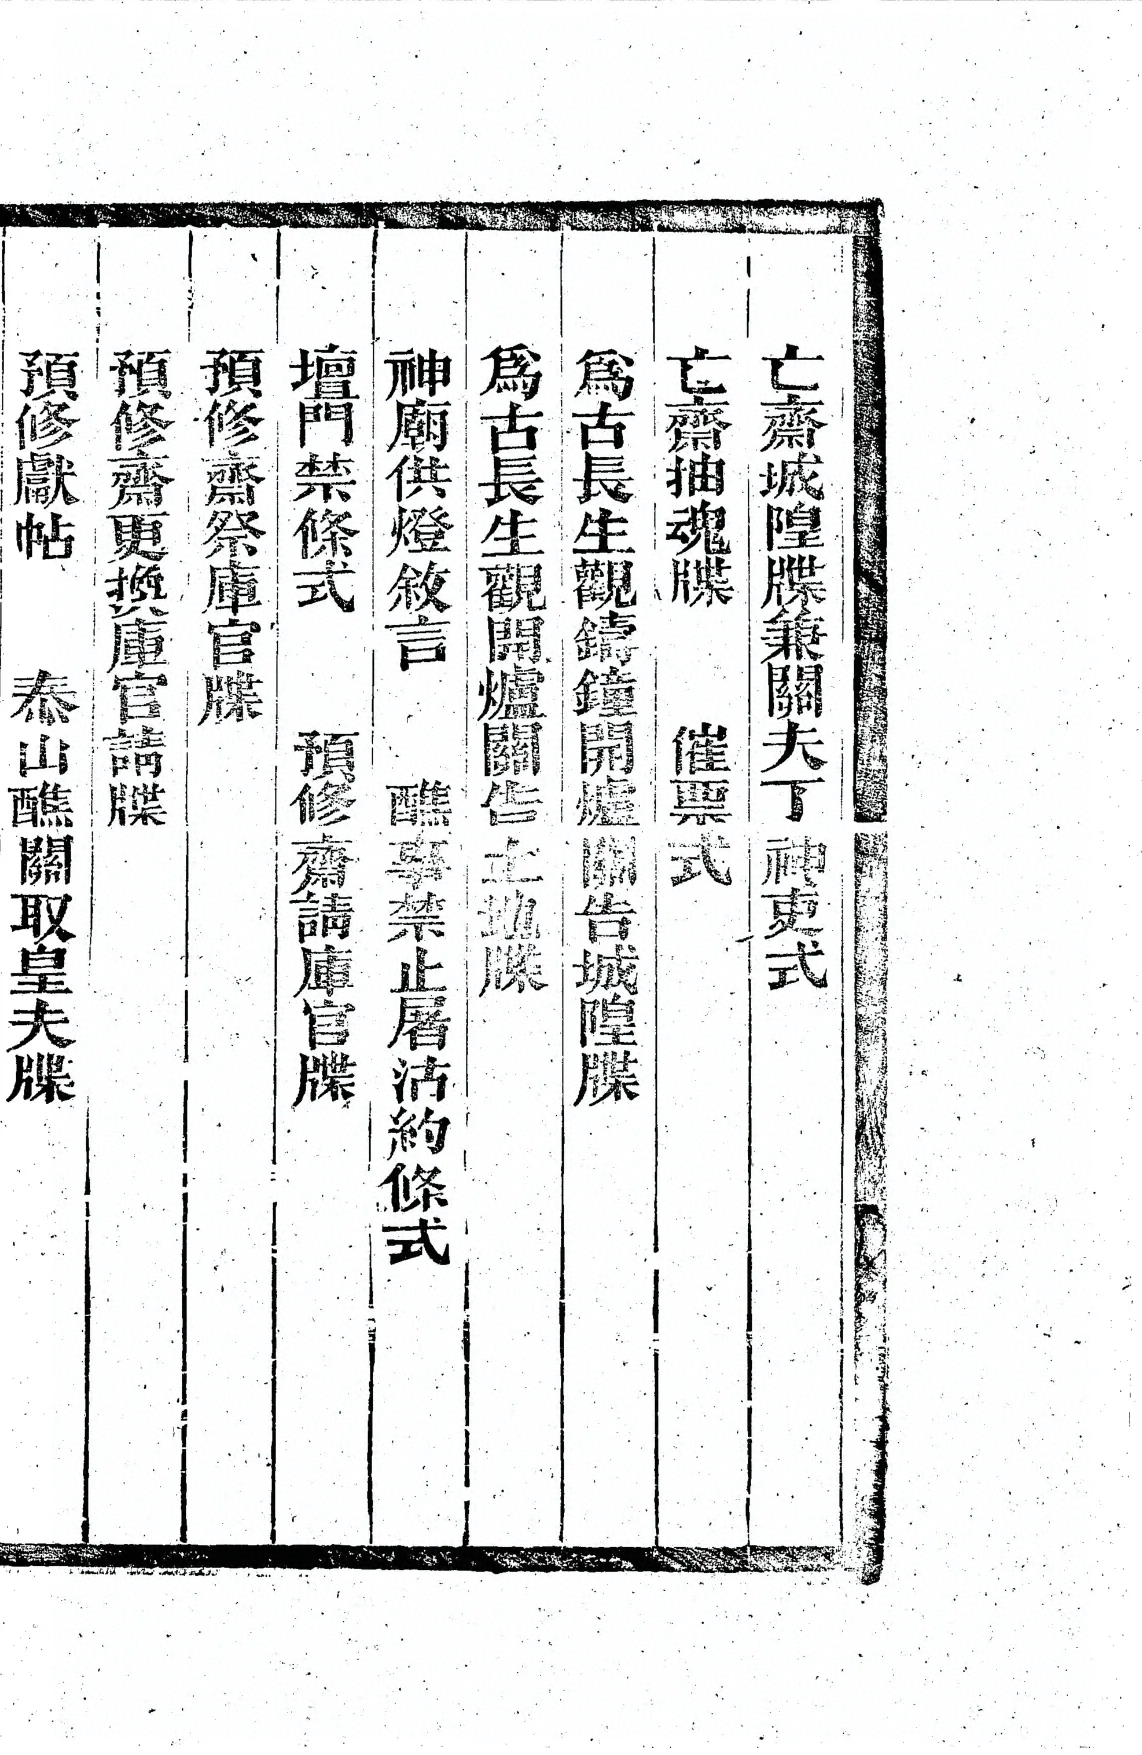 亡齋城隍牒兼關夫丁神吏式
亡齋抽魂牒　催票式
爲古長生觀鑄鐘開爐關告城隍牒
爲古長生觀開爐關告土地牒
神廟供燈敘言　醮事禁止屠沽約條式
壇門禁條式　預修齋請庫官牒
預修齋祭庫官牒
預修齋更換庫官請牒
預修獻帖　泰山醮關取皇夫牒